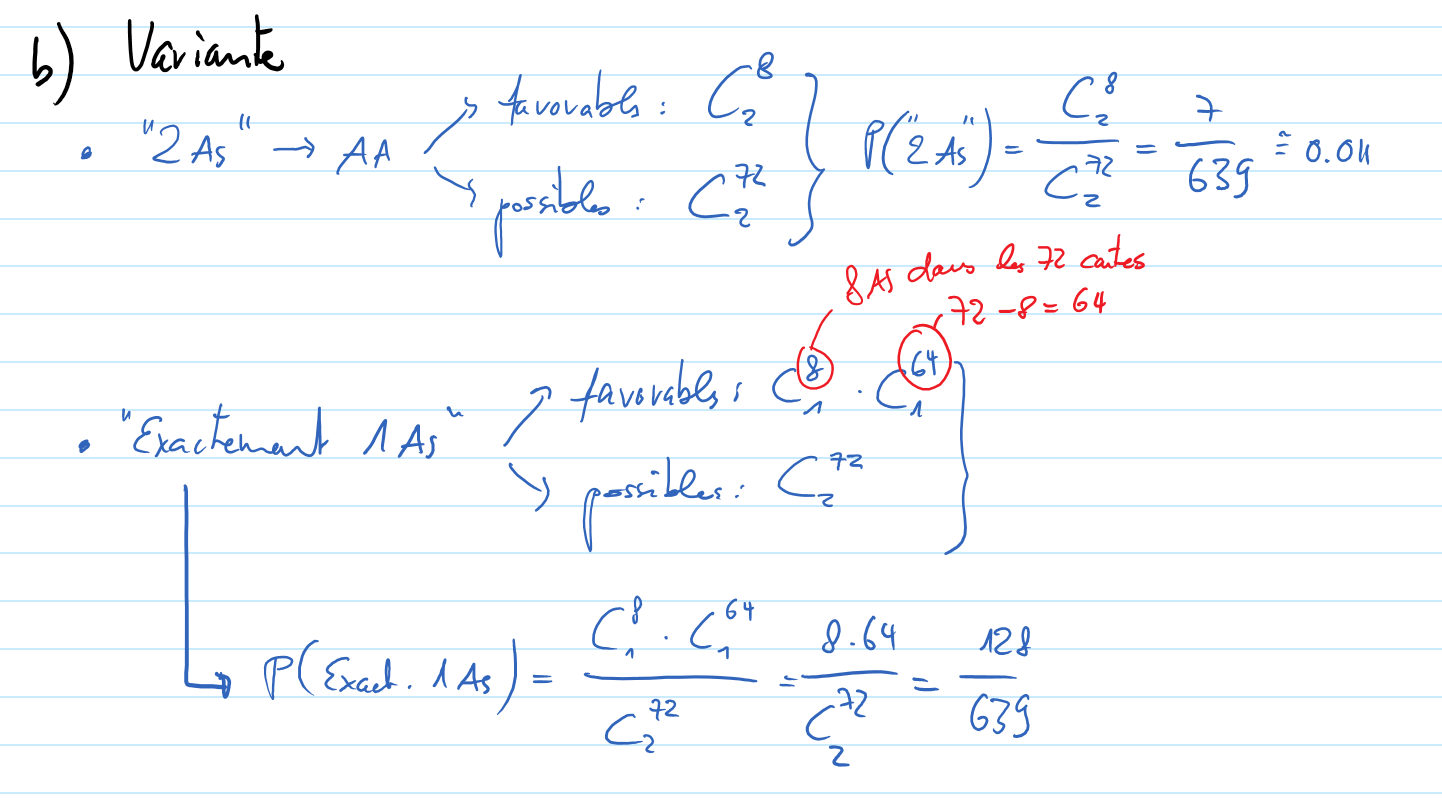 b) Variante
• "2 As" → AA
↗ favorables : C₂⁸
↘ possibles : C₂⁷²
} P("2 As") = C₂⁸ / C₂⁷² = 7 / 639 ≅ 0.011
8 As dans les 72 cartes
72 - 8 = 64
• "Exactement 1 As"
↗ favorables : C₁⁸ · C₁⁶⁴
↘ possibles : C₂⁷²
}
↳ P(Exact. 1 As) = C₁⁸ · C₁⁶⁴ / C₂⁷² = 8·64 / C₂⁷² = 128 / 639